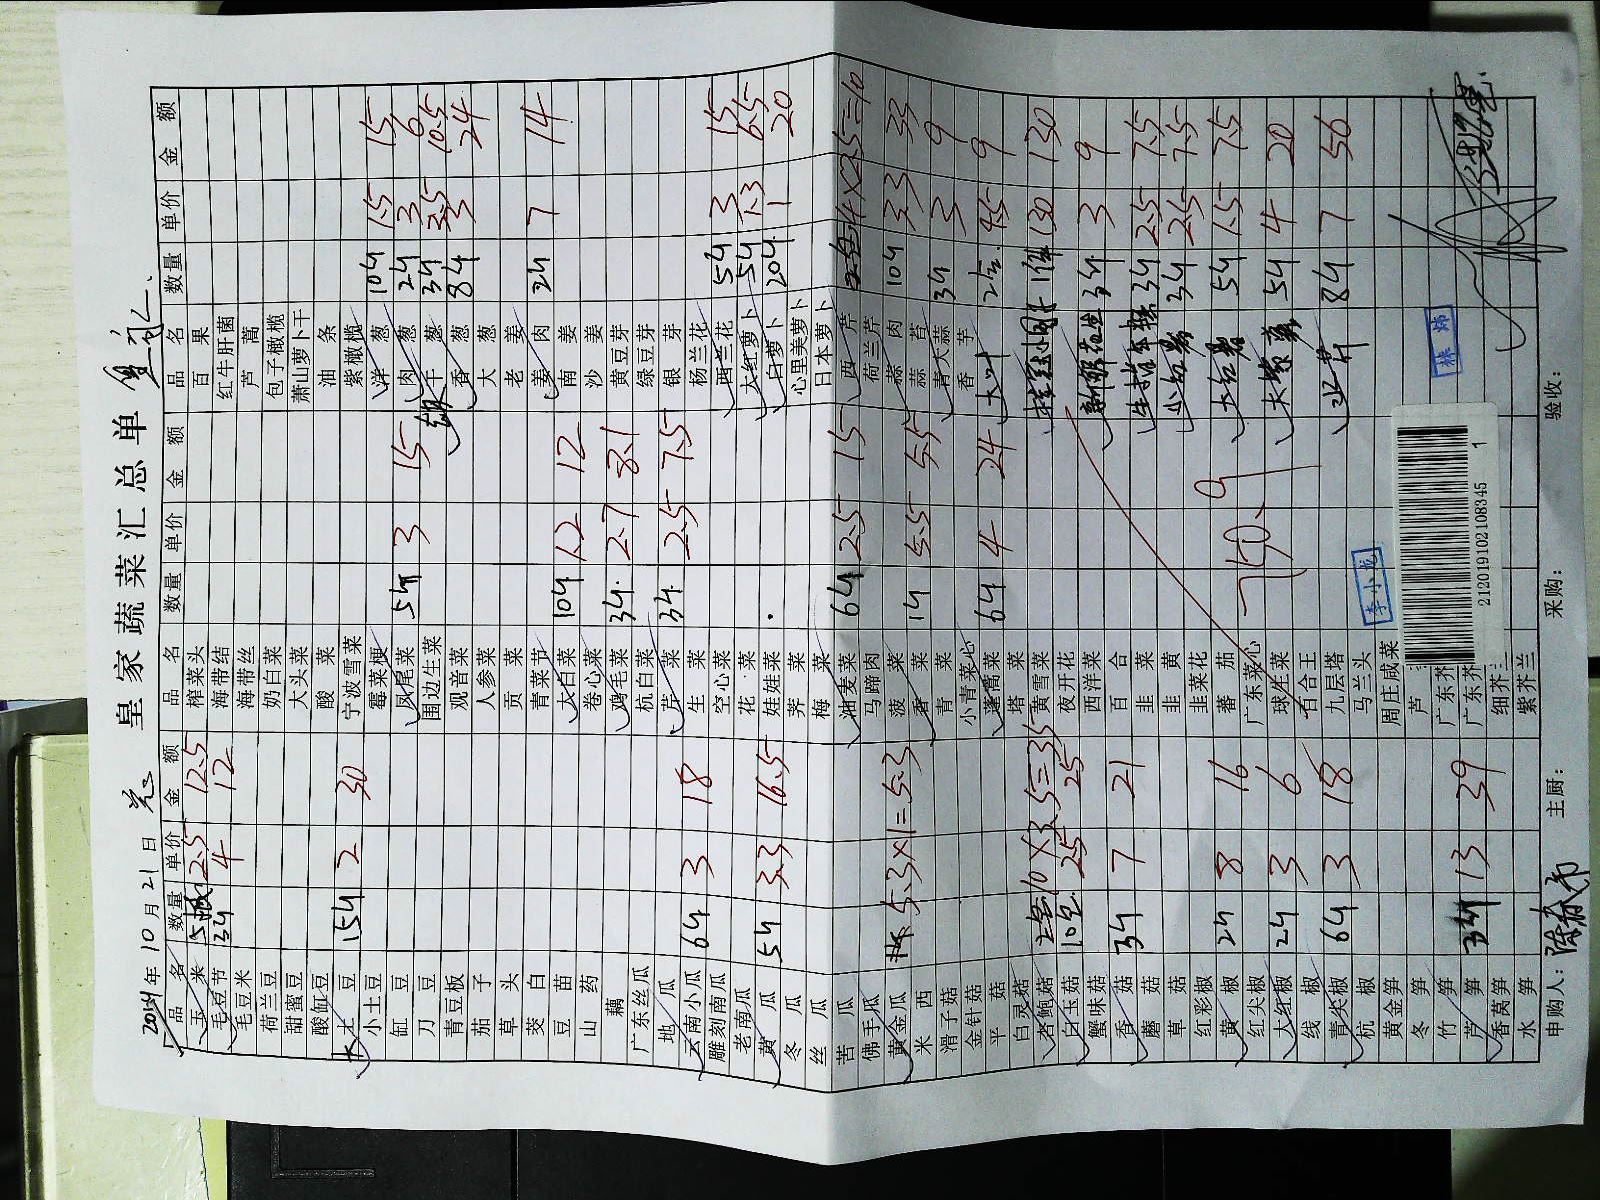 皇家蔬菜汇总单
年 10 月 21 日
品 名 数量 单价 金 额 品 名 数量 单价 金 额 品 名 数量 单价 金 额
玉 米 2.5 12.5 榨菜头 百 果
毛豆节 4 12 海带结 红牛肝菌
毛豆米 海带丝 芦 蒿
荷兰豆 奶白菜 包子橄榄
甜蜜豆 大头菜 萧山萝卜干
酸缸豆 酸 菜 油 条
土 豆 15斤 2 30 宁波雪菜 紫橄榄
小土豆 霉菜梗 洋 葱 10斤 1.5 15
缸 豆 凤尾菜 5斤 3 15 肉 葱 2斤 3 6
刀 豆 围边生菜 干 葱 3斤 3.5 10.5
青豆板 观音菜 香 葱 8斤 3 24
茄 子 人参菜 大 葱
草 头 贡 菜 老 姜
茭 白 青菜节 姜 肉 2斤 7 14
豆 苗 大白菜 10斤 1.2 12 南 姜
山 药 卷心菜 沙 姜
藕 鸡毛菜 3斤 2.7 8.1 黄豆芽
广东丝瓜 杭白菜 绿豆芽
地 瓜 芹 菜 3斤 2.5 7.5 银 芽
云南小瓜 6斤 3 18 生 菜 杨兰花
雕刻南瓜 空心菜 西兰花 5斤 3 15
老南瓜 花 菜 大红萝卜 5斤 1.3 6.5
黄 瓜 5斤 3.3 16.5 娃娃菜 白萝卜 20斤 1 20
冬 瓜 荠 菜 心里美萝卜
丝 瓜 梅 菜 日本萝卜
苦 瓜 油麦菜 6斤 2.5 15 西 芹 4×2.5=10
佛手瓜 马蹄肉 荷兰芹
黄金瓜 5.3×1=5.3 菠 菜 蒜 肉 10斤 3.3 33
米 西 香 菜 1斤 5.5 5.5 蒜 苔
滑子菇 青 菜 青大蒜 3斤 3 9
金针菇 小青菜心 香 芋
平 菇 蓬蒿菜 6斤 4 24 4.5 9
白灵菇 塔 菜
猪鲍菇 10×3.5=35 黄雪菜 1件 130 130
白玉菇 10包 2.5 25 夜开花
蟹味菇 西洋菜 3斤 3 9
香 菇 3斤 7 21 百 合
蘑 菇 韭 菜 3斤 2.5 7.5
草 菇 韭 黄 3斤 2.5 7.5
红彩椒 韭菜花
黄 椒 2斤 8 16 番 茄 5斤 1.5 7.5
红尖椒 广东菜心
大红椒 2斤 3 6 球生菜 5斤 4 20
线 椒 百合王
青尖椒 6斤 3 18 九层塔 8斤 7 56
杭 椒 马兰头
黄金笋 周庄咸菜
冬 笋 芦
竹 笋 广东芥
芦 笋 13 39 广东芥
香莴笋 细芥兰
水 笋 紫芥兰
750.9
李小龙
2120191021083451
申购人: 主厨: 采购: 验收: